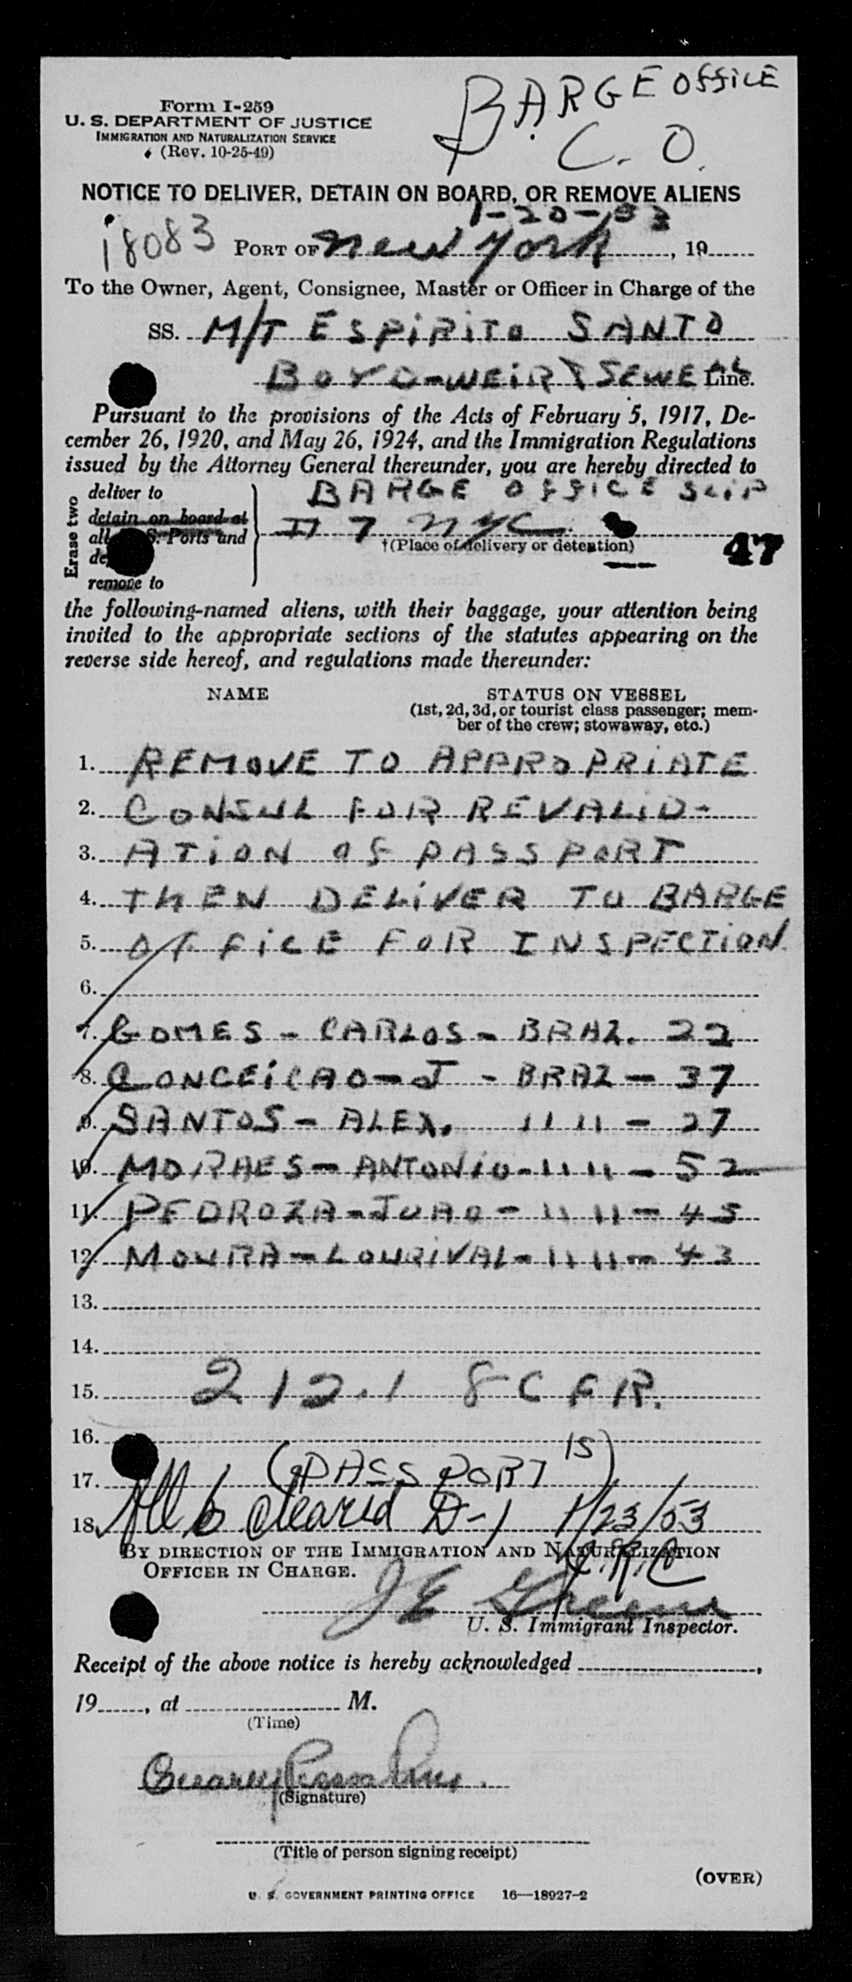 BARGE OFFICE
C. O.
Form I-259
U. S. DEPARTMENT OF JUSTICE
IMMIGRATION AND NATURALIZATION SERVICE
(Rev. 10-25-49)
NOTICE TO DELIVER, DETAIN ON BOARD, OR REMOVE ALIENS
1-20-53
18083 PORT OF New York, 19
To the Owner, Agent, Consignee, Master or Officer in Charge of the
SS. M/T ESPIRITO SANTO
BOYD-WEIR & SEWELL Line.
Pursuant to the provisions of the Acts of February 5, 1917, De-
cember 26, 1920, and May 26, 1924, and the Immigration Regulations
issued by the Attorney General thereunder, you are hereby directed to
Erase two
deliver to BARGE OFFICE SLIP
detain on board at
all U.S. Ports and # 7 NYC.
†(Place of delivery or detention) 47
remove to
the following-named aliens, with their baggage, your attention being
invited to the appropriate sections of the statutes appearing on the
reverse side hereof, and regulations made thereunder:
NAME STATUS ON VESSEL
(1st, 2d, 3d, or tourist class passenger; mem-
ber of the crew; stowaway, etc.)
1. REMOVE TO APPROPRIATE
2. CONSUL FOR REVALID-
3. ATION OF PASSPORT
4. THEN DELIVER TO BARGE
5. OFFICE FOR INSPECTION.
6.
7. GOMES - CARLOS - BRAZ. 22
8. CONCEICAO - J - BRAZ - 37
9. SANTOS - ALEX. 11 11 - 27
10. MORAES - ANTONIO - 11 11 - 52
11. PEDROZA - JOAO - 11 11 - 45
12. MOURA - LOURIVAL - 11 11 - 43
13.
14.
15. 212.1 8 C F R.
16.
17. (PASSPORT 15)
18. All 6 cleared D-1 1/23/53
BY DIRECTION OF THE IMMIGRATION AND NATURALIZATION
OFFICER IN CHARGE.
J E Greene
U. S. Immigrant Inspector.
Receipt of the above notice is hereby acknowledged ,
19 , at M.
(Time)
(Signature)
(Title of person signing receipt)
(OVER)
U. S. GOVERNMENT PRINTING OFFICE 16—18927-2